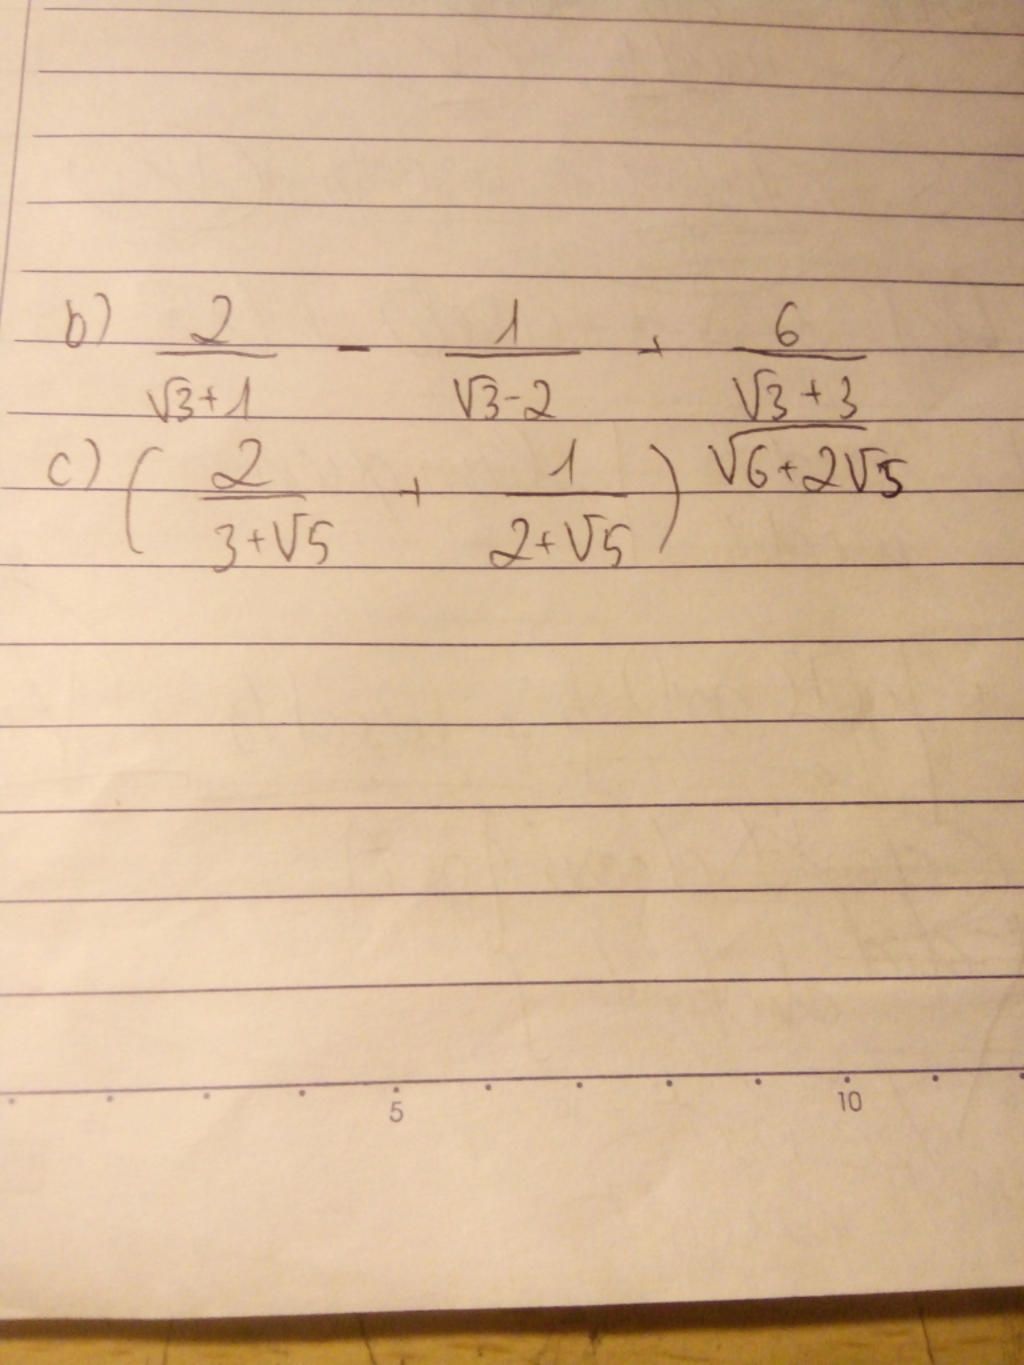 b) 2/(√3+1) - 1/(√3-2) + 6/(√3+3)
c) (2/(3+√5) + 1/(2+√5)) √(6+2√5)
5 10